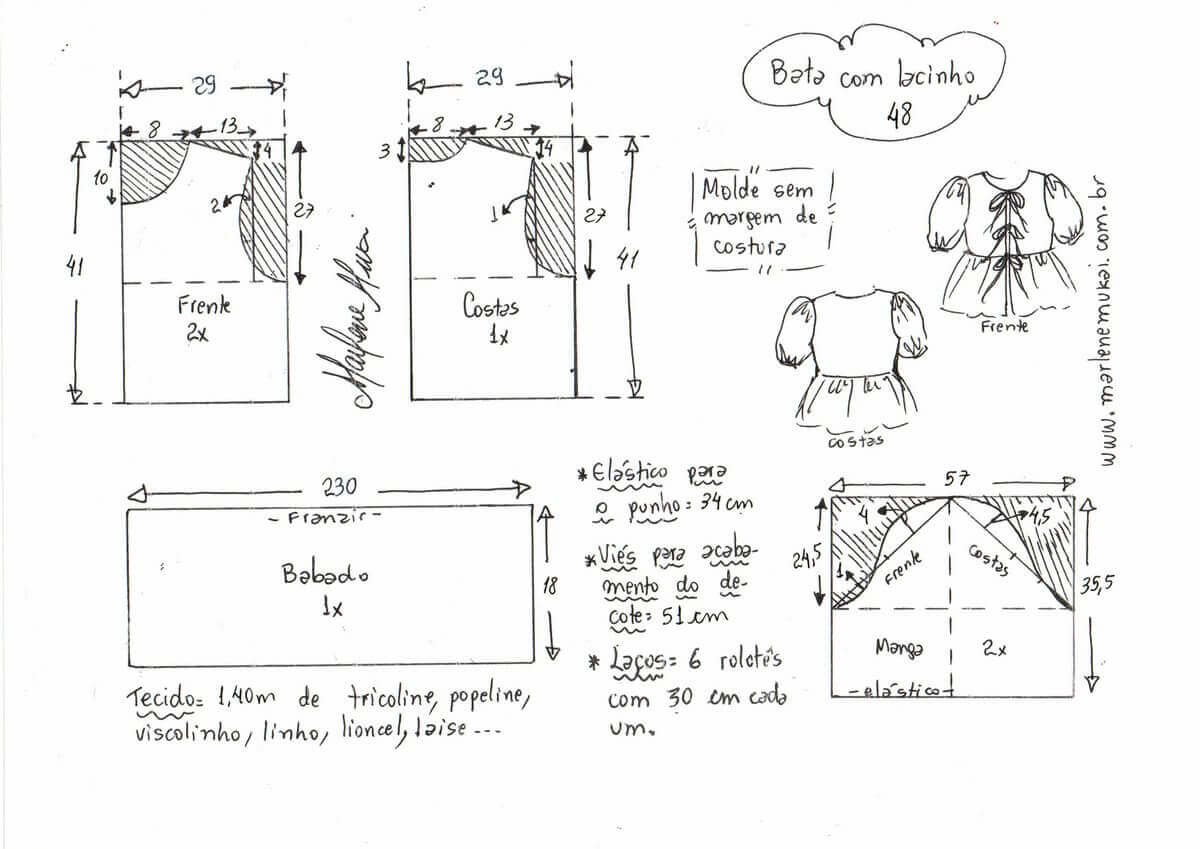 Bata com lacinho
48
29
8
13
4
10
2
27
41
Frente
2x
29
8
13
4
3
1
27
41
Costas
1x
Marlene Mukai
Molde sem
margem de
costura
Frente
costas
www.marlenemukai.com.br
230
- Franzir -
Babado
1x
18
Tecido= 1,40m de tricoline, popeline,
viscolinho, linho, lioncel, laise ---
* Elástico para
o punho= 34cm
* Viés para acaba-
mento do de-
cote= 51cm
* Laços= 6 rolotês
com 30 cm cada
um.
57
4
4,5
24,5
1
Frente
Costas
35,5
Manga
2x
-elástico-